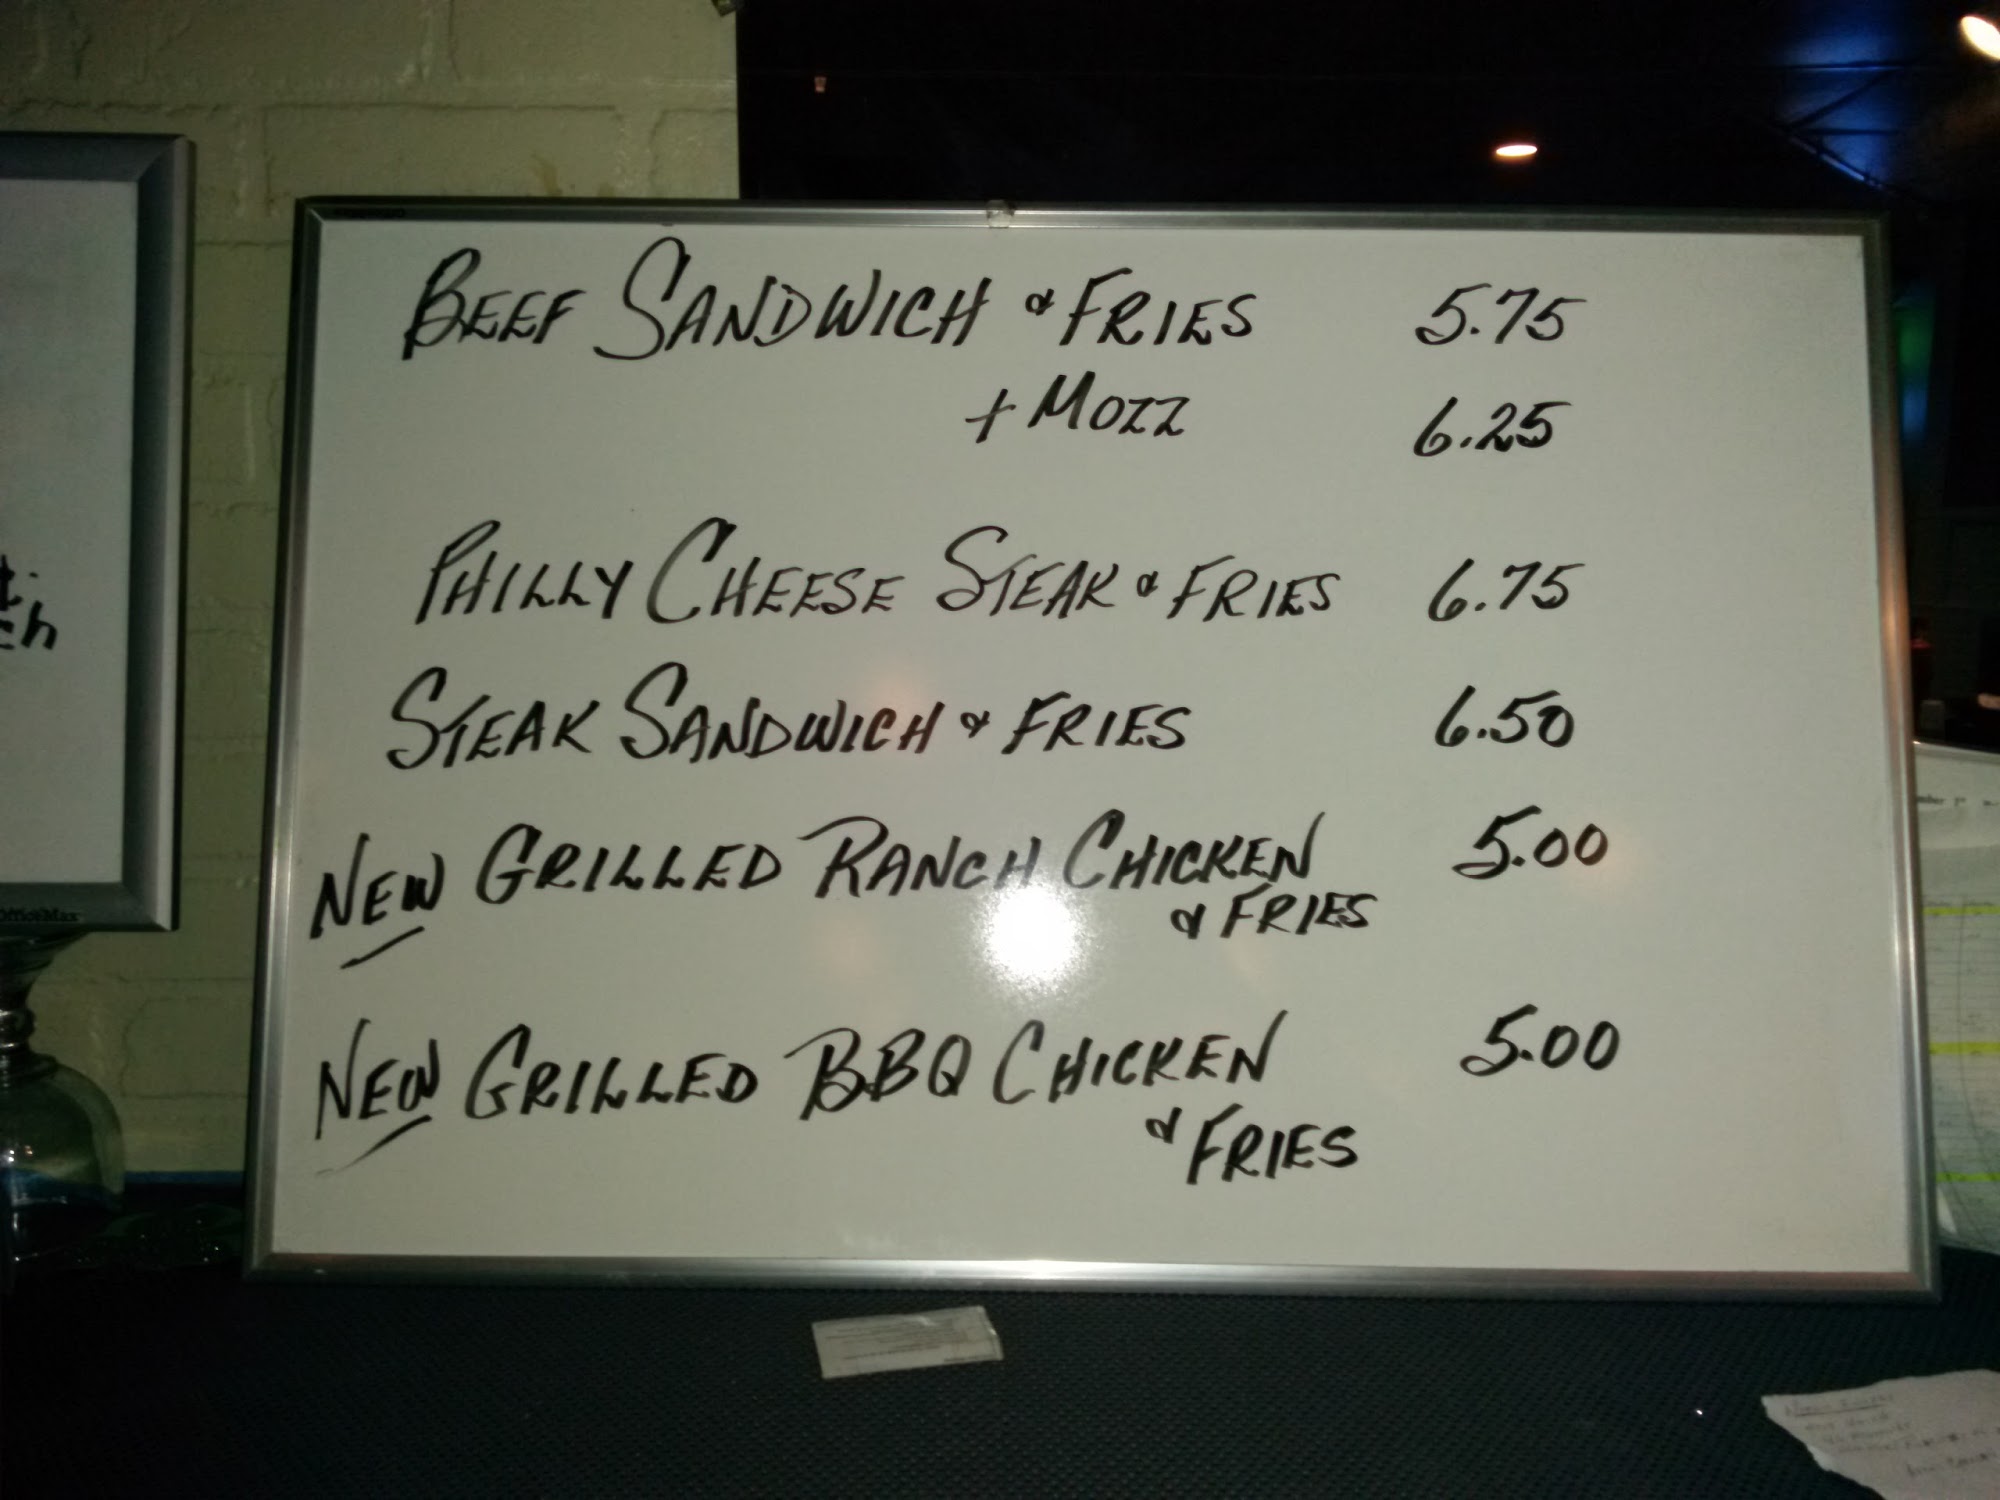 BEEF SANDWICH & FRIES 5.75
+ MOZZ 6.25
PHILLY CHEESE STEAK & FRIES 6.75
STEAK SANDWICH & FRIES 6.50
NEW GRILLED RANCH CHICKEN 5.00
& FRIES
NEW GRILLED BBQ CHICKEN 5.00
& FRIES
OfficeMax